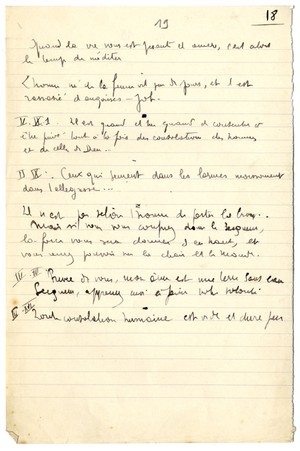 18
19
Quand la vie vous est pesant et amer, c'est alors
le temps de méditer
L'homme né de la femme vit peu de jours, et il est
rassasié d'angoisses - Job.
Il est grand et bien grand de consentir à
être privé tout à la fois des consolations des hommes
et de celles de Dieu...
Ceux qui sèment dans les larmes moissonnent
dans l'allégresse...
Il n'est pas selon l'homme de porter la croix...
Mais si vous vous confiez dans le Seigneur,
la force vous sera donnée d'en haut, et
vous aurez pouvoir sur la chair et le monde.
Privée de vous, mon âme est une terre sans eau
Seigneur, apprenez moi à faire votre volonté.
Toute consolation humaine est vide et dure peu